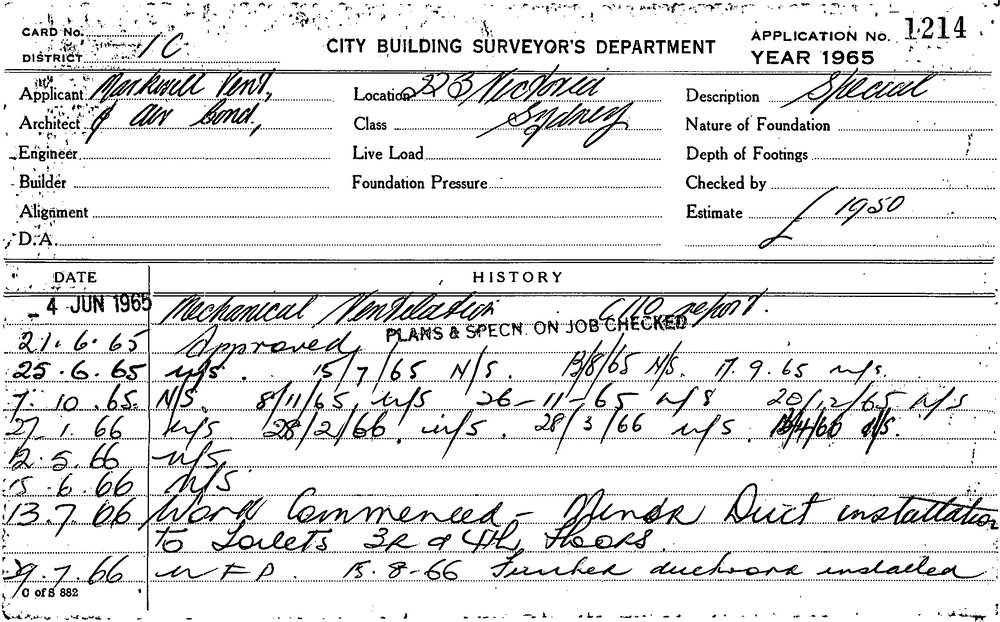 CARD No.
DISTRICT 1C
CITY BUILDING SURVEYOR'S DEPARTMENT
APPLICATION No. 1214
YEAR 1965
Applicant Markwell Vent,
Architect & Air Cond,
Engineer
Builder
Alignment
D.A.
Location 22B Victoria
Class Sydney
Live Load
Foundation Pressure
Description Special
Nature of Foundation
Depth of Footings
Checked by
Estimate £ 1950
DATE HISTORY
4 JUN 1965 Mechanical Ventilation report.
PLANS & SPECN. ON JOB CHECKED
21.6.65 Approved
25.6.65 N/S. 15/7/65 N/S. 13/8/65 N/S. 17.9.65 N/S.
7.10.65. N/S. 8/11/65 N/S 26-11-65 N/S 20/12/65 N/S
27.1.66 N/S 28/2/66 N/S. 28/3/66 N/S. 13/4/66 N/S.
12.5.66 N/S
15.6.66 N/S
13.7.66 Work Commenced - Minor Duct installation
to Toilets 3R & 4th Floors.
29.7.66 W F P. 15-8-66 Further ductwork installed
C of S 882